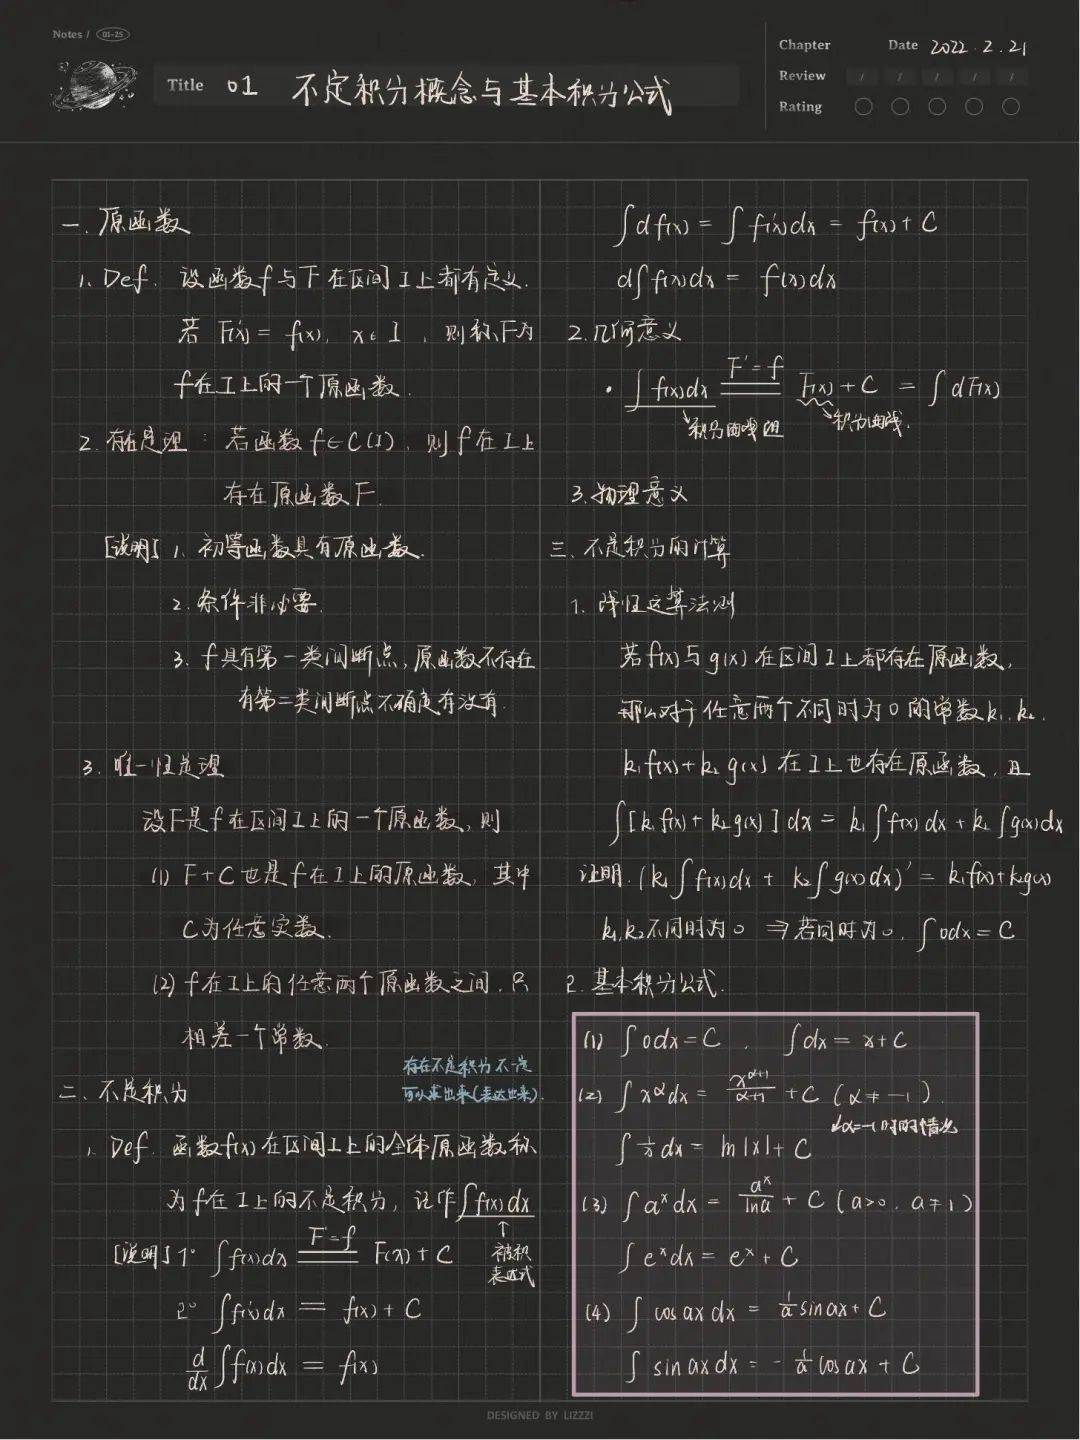 Notes / 01-25
Title 01 不定积分概念与基本积分公式
Chapter
Date 2022.2.21
Review / / / / /
Rating
一、原函数
1. Def. 设函数f与F在区间I上都有定义.
若 F'(x) = f(x), x∈I , 则称F为
f在I上的一个原函数.
2. 存在定理: 若函数 f∈C(I), 则f在I上
存在原函数F.
[说明] 1. 初等函数具有原函数.
2. 条件非必要.
3. f具有第一类间断点,原函数不存在
有第二类间断点不确定有没有.
3. 唯一性定理
设F是f在区间I上的一个原函数,则
(1) F+C也是f在I上的原函数, 其中
C为任意实数.
(2) f在I上的任意两个原函数之间,只
相差一个常数.
存在不定积分不一定
可以求出来(表达出来).
二、不定积分
1. Def. 函数f(x)在区间I上的全体原函数称
为f在I上的不定积分, 记作∫f(x)dx
↑
被积
表达式
[说明] 1° ∫f(x)dx ==F'=f== F(x) + C
2° ∫f'(x)dx = f(x) + C
d/dx ∫f(x)dx = f(x)
∫d f(x) = ∫f'(x)dx = f(x) + C
d∫f(x)dx = f(x)dx
2. 几何意义
• ∫f(x)dx ==F'=f== F(x) + C = ∫dF(x)
积分曲线组 积分曲线.
3. 物理意义
三、不定积分的计算
1. 线性运算法则
若f(x)与g(x)在区间I上都存在原函数,
那么对于任意两个不同时为0的常数k₁,k₂,
k₁f(x)+k₂g(x)在I上也存在原函数,且
∫[k₁f(x)+k₂g(x)]dx = k₁∫f(x)dx + k₂∫g(x)dx
证明. (k₁∫f(x)dx + k₂∫g(x)dx)' = k₁f(x)+k₂g(x)
k₁,k₂不同时为0 ⇒ 若同时为0, ∫0dx = C
2. 基本积分公式.
(1) ∫0dx = C , ∫dx = x+C
(2) ∫x^α dx = x^(α+1)/(α+1) + C (α ≠ -1).
∫1/x dx = ln|x| + C
(3) ∫a^x dx = a^x/ln a + C (a>0, a≠1)
∫e^x dx = e^x + C
(4) ∫cos ax dx = 1/a sin ax + C
∫sin ax dx = - 1/a cos ax + C
DESIGNED BY LIZZZI